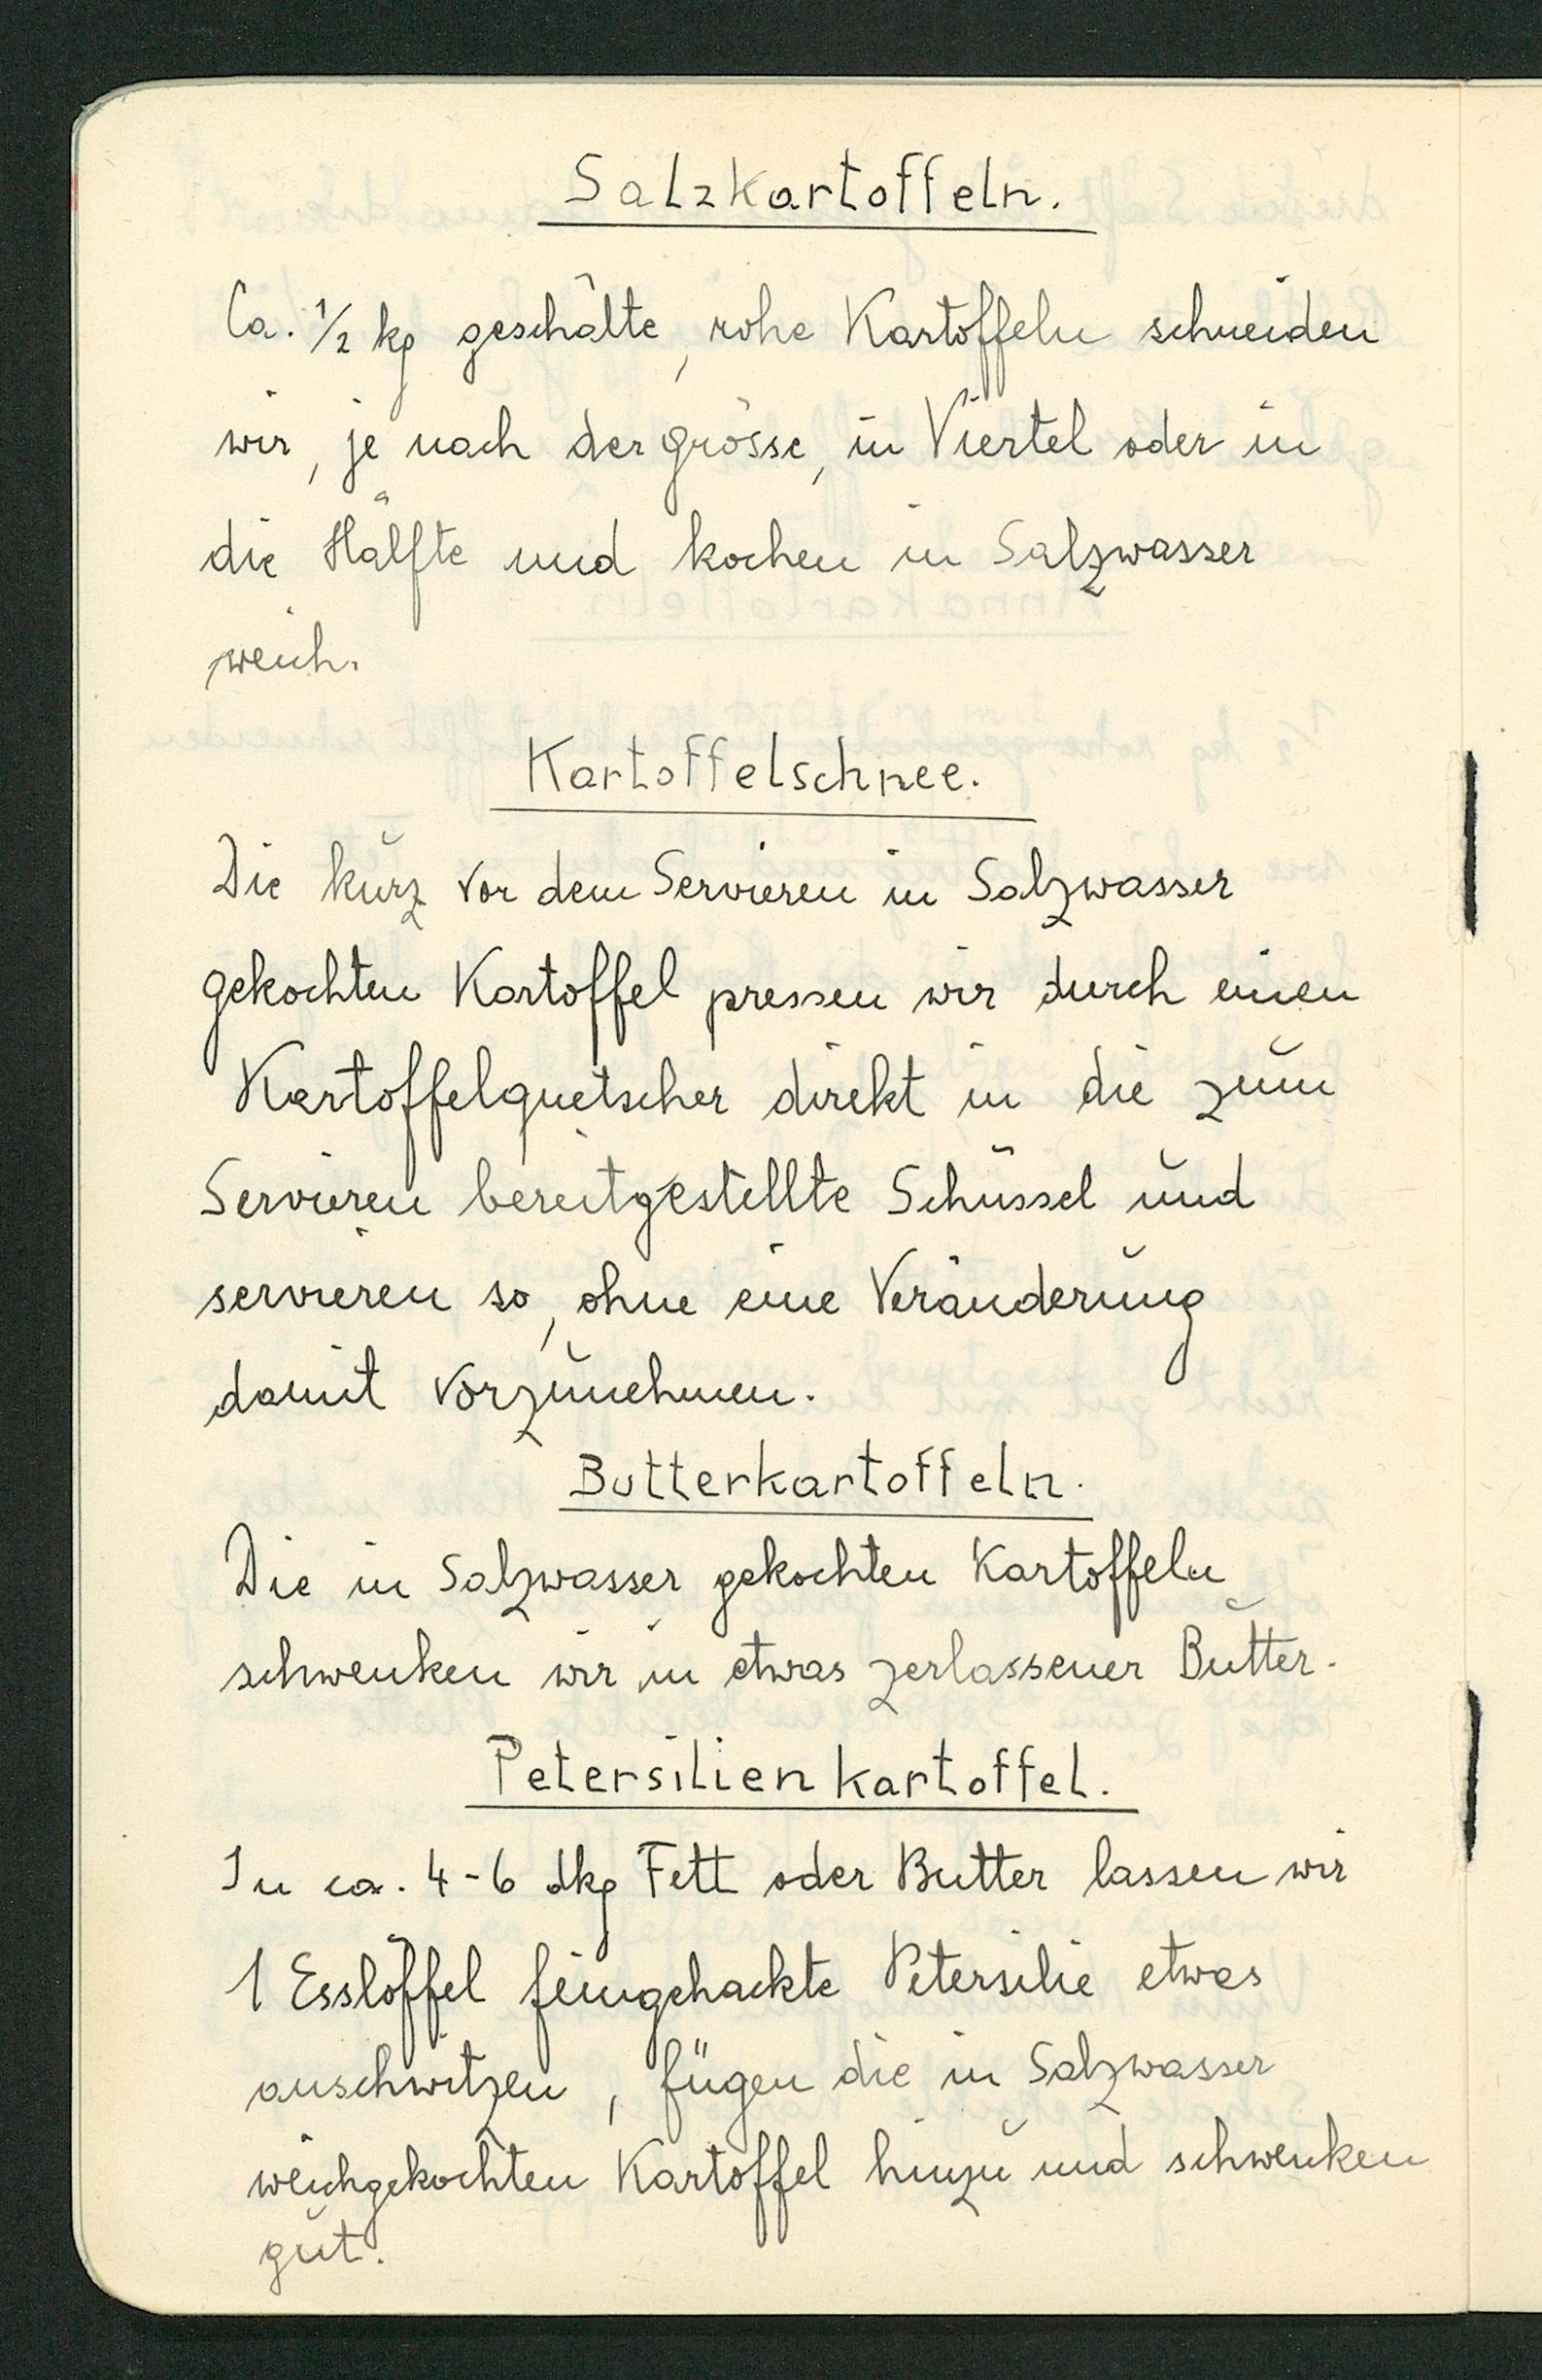 Salzkartoffeln.
Ca. ½ kg geschälte, rohe Kartoffeln schneiden
wir, je nach der grösse, in Viertel oder in
die Hälfte und kochen in Salzwasser
weich.
Kartoffelschnee.
Die kurz vor dem Servieren in Salzwasser
gekochten Kartoffel pressen wir durch einen
Kartoffelquetscher direkt in die zum
Servieren bereitgestellte Schüssel und
servieren so, ohne eine Veränderung
damit vorzunehmen.
Butterkartoffeln.
Die in Salzwasser gekochten Kartoffeln
schwenken wir in etwas zerlassener Butter.
Petersilienkartoffel.
In ca. 4-6 dkg Fett oder Butter lassen wir
1 Esslöffel feingehackte Petersilie etwas
anschwitzen, fügen die in Salzwasser
weichgekochten Kartoffel hinzu und schwenken
gut.